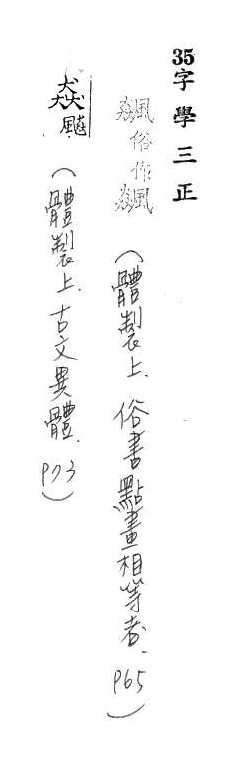 35字學三正
飆俗作 (體製上.俗書點畫相等者.P65)
(體製上.古文異體.P73)